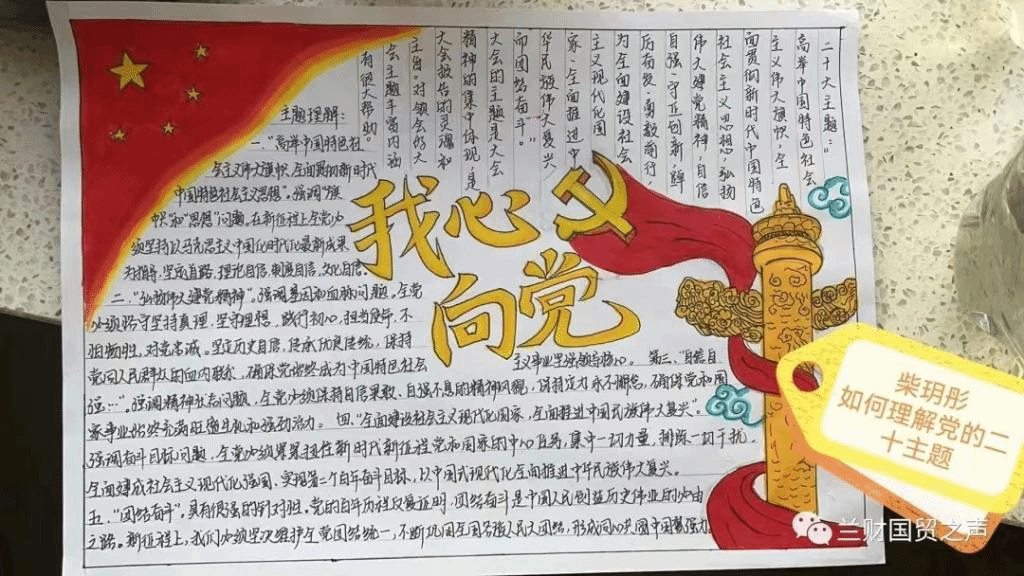 二十大主题：“
高举中国特色社会
主义伟大旗帜，全
面贯彻新时代中国特色
社会主义思想，弘扬
伟大建党精神，自信
自强、守正创新，踔
厉奋发、勇毅前行，
为全面建设社会
主义现代化国
家、全面推进中
华民族伟大复兴
而团结奋斗。”
大会的主题是大会
精神的集中体现，是
大会报告的灵魂和
主旨。对领会好大
会主题丰富内涵
有很大帮助
我心
向党
主题理解：
一、“高举中国特色社
会主义伟大旗帜，全面贯彻新时代
中国特色社会主义思想”。强调“旗
帜”和“思想”问题。在新征程上全党必
须坚持以马克思主义中国化时代化最新成果
为指导，坚定道路、理论自信，制度自信，文化自信。
二、“弘扬伟大建党精神”。强调基因和血脉问题。全党
必须恪守坚持真理、坚守理想，践行初心、担当使命，不
怕牺牲，对党忠诚。坚定历史自信，传承优良传统，保持
党同人民群众的血内联系，确保党始终成为中国特色社会
主义事业坚强领导核心。 第三、“自信自
强…”。强调精神状态问题，全党必须保持自信果敢、自强不息的精神风貌，保持定力永不懈怠，确保党和国
家事业始终充满旺盛生机和强劲活力。 四、“全面建设社会主义现代化国家、全面推进中国民族伟大复兴”。
强调奋斗目标问题，全党必须紧紧扭住新时代新征程党和国家的中心任务，集中一切力量，排除一切干扰。
全面建成社会主义现代化强国、实现第二个百年奋斗目标，以中国式现代化全面推进中华民族伟大复兴。
五、“团结奋斗”。具有很强的针对性。党的百年历程反复证明，团结奋斗是中国人民创造历史伟业的必由
之路。新征程上，我们必须坚决维护全党团结统一，不断巩固全国各族人民大团结，形成同心共圆中国梦强力
柴玥彤
如何理解党的二
十主题
兰财国贸之声